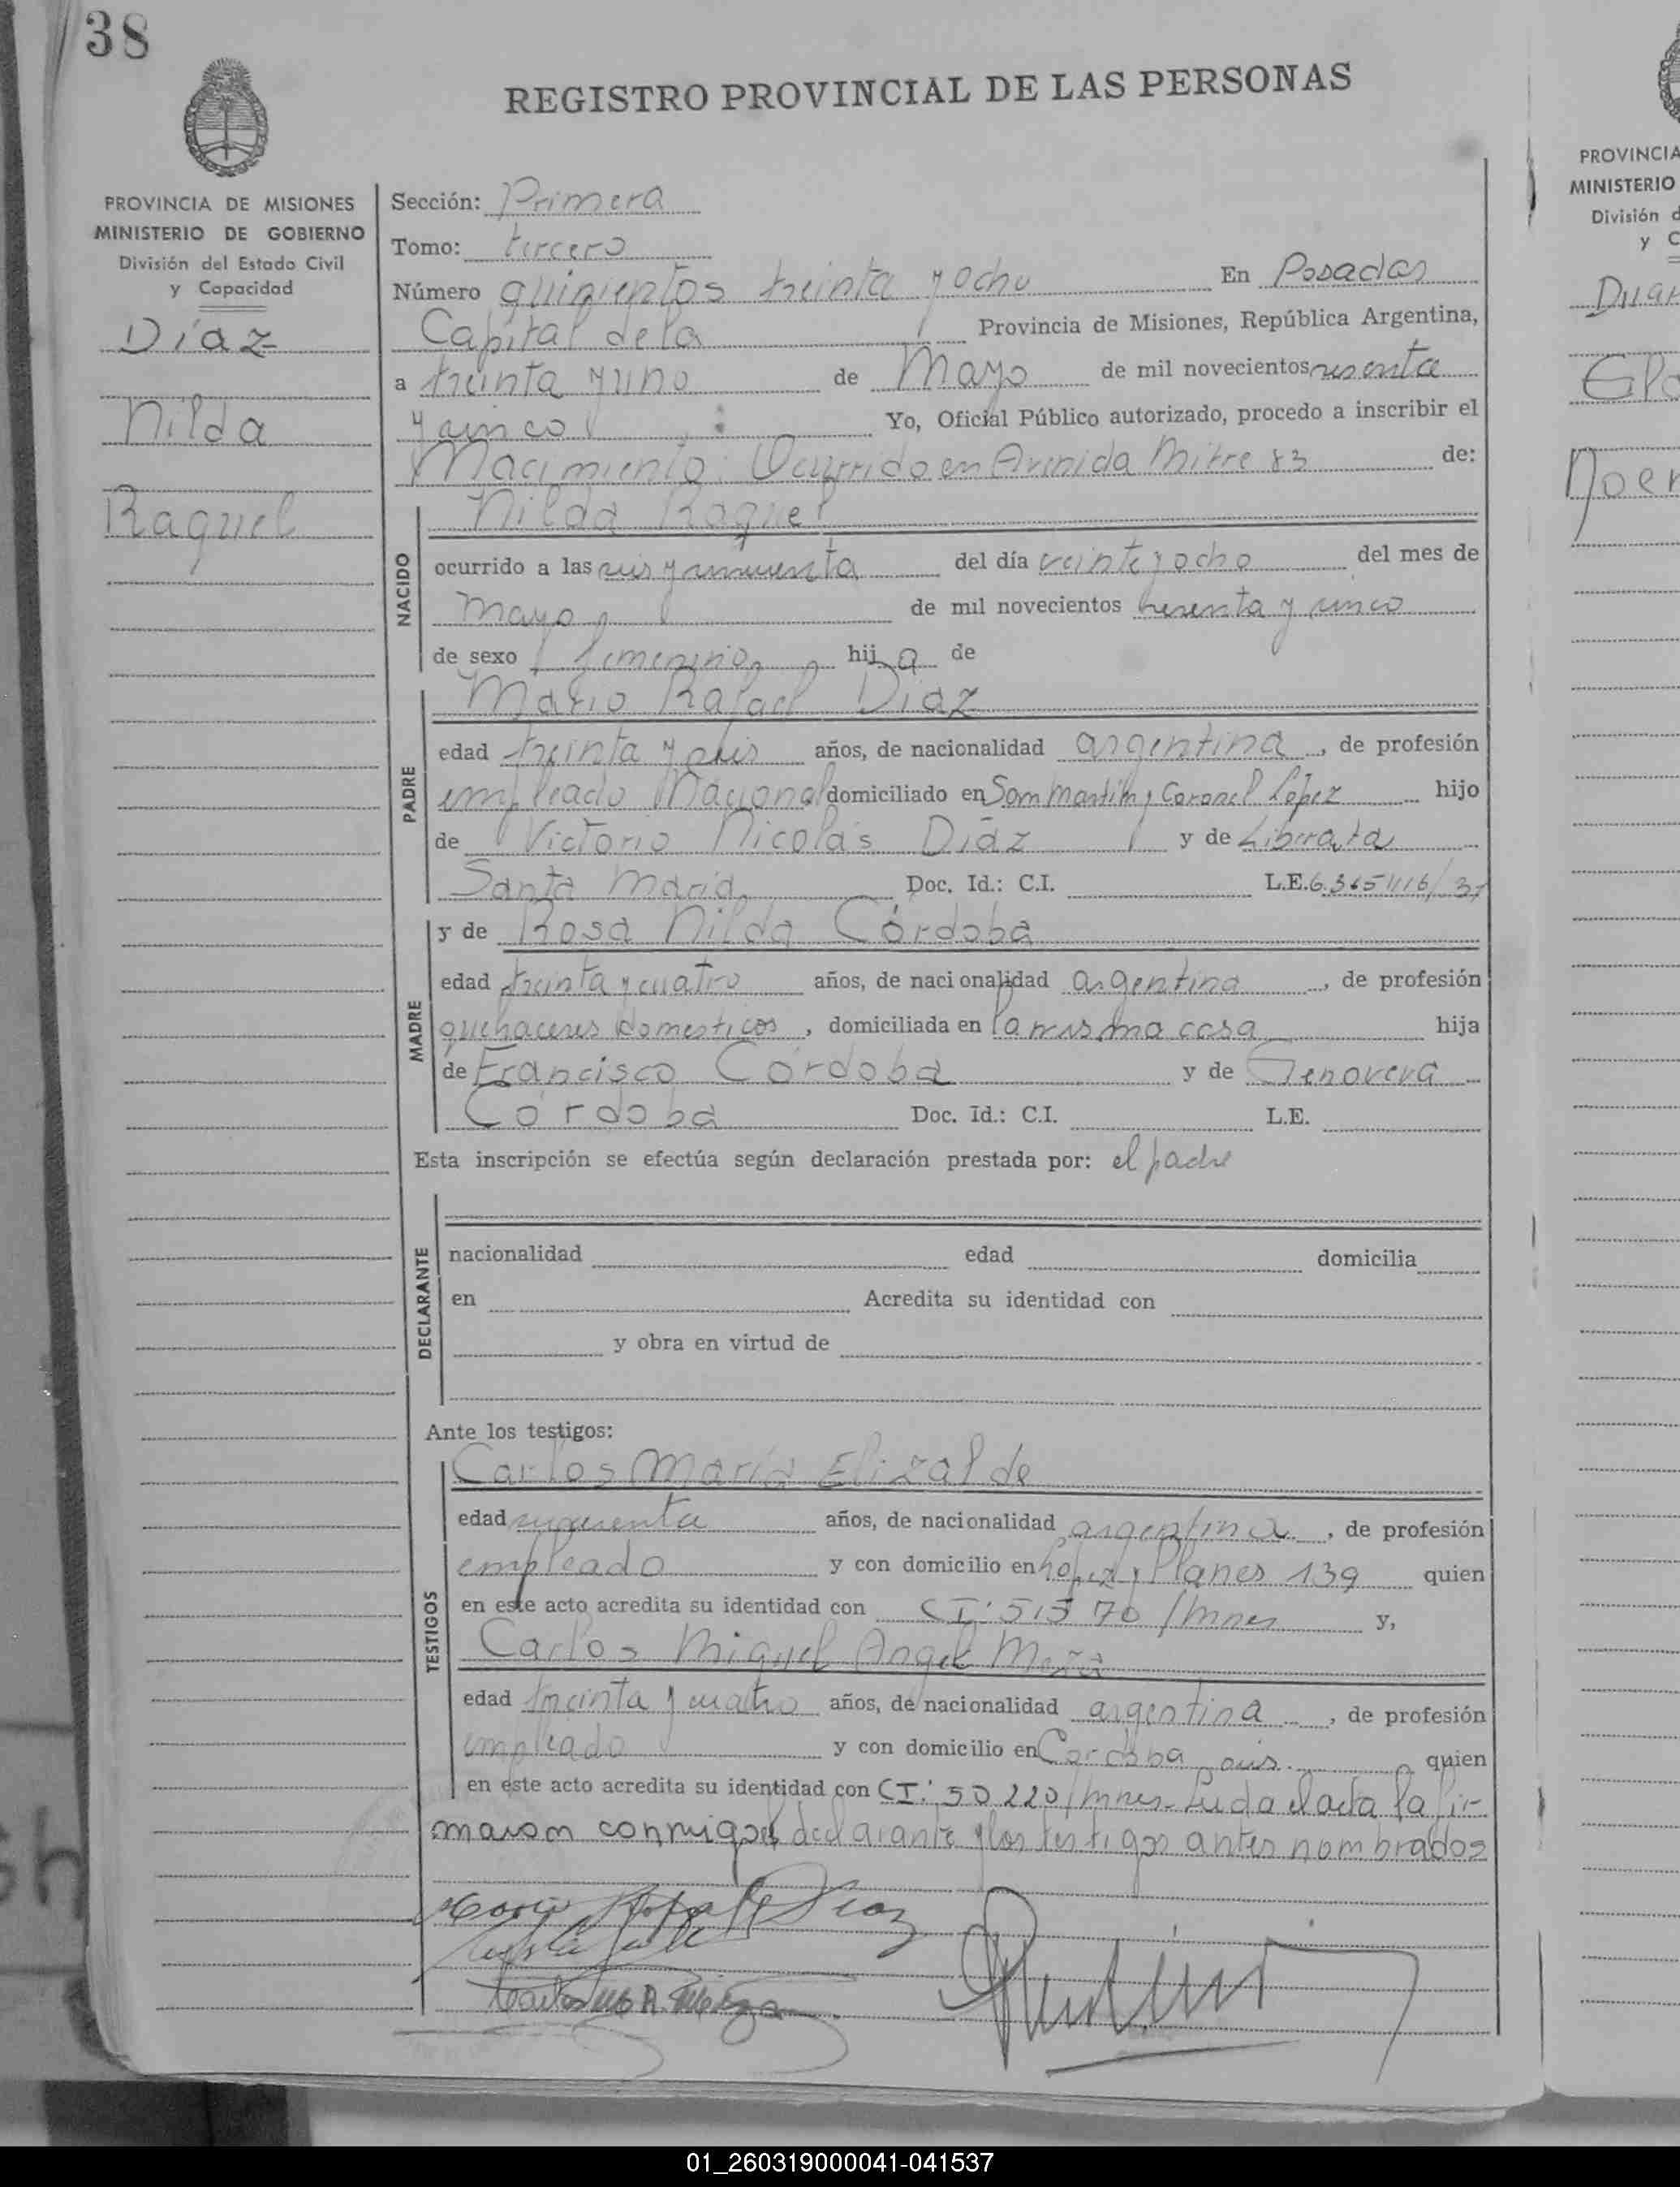 38
REGISTRO PROVINCIAL DE LAS PERSONAS
PROVINCIA DE MISIONES
MINISTERIO DE GOBIERNO
División del Estado Civil
y Capacidad
Díaz
Nilda
Raquel
Sección: Primera
Tomo: tercero
Número quinientos treinta y ocho En Posadas
Capital de la Provincia de Misiones, República Argentina,
a treinta y uno de Mayo de mil novecientos sesenta
y cinco Yo, Oficial Público autorizado, procedo a inscribir el
Nacimiento: Ocurrido en Avenida Mitre 83 de:
Nilda Raquel
NACIDO
ocurrido a las seis y cincuenta del día veinte y ocho del mes de
mayo de mil novecientos sesenta y cinco
de sexo femenino hija de
Mario Rafael Díaz
PADRE
edad treinta y seis años, de nacionalidad argentina, de profesión
empleado Nacional domiciliado en San Martín y Coronel López hijo
de Victorio Nicolás Díaz y de Liberata
Santa María Doc. Id.: C.I. L.E.
MADRE
y de Rosa Nilda Córdoba
edad treinta y cuatro años, de nacionalidad argentina, de profesión
quehaceres domesticos, domiciliada en la misma casa hija
de Francisco Córdoba y de Genoveva
Córdoba Doc. Id.: C.I. L.E.
Esta inscripción se efectúa según declaración prestada por: el padre
DECLARANTE
nacionalidad edad domicilia
en Acredita su identidad con
y obra en virtud de
Ante los testigos:
TESTIGOS
Carlos María Elizalde
edad años, de nacionalidad argentina, de profesión
empleado y con domicilio en López y Planes 139 quien
en este acto acredita su identidad con CI: 51570/Mnes y,
Carlos Miguel Angel Meza
edad treinta y cuatro años, de nacionalidad argentina, de profesión
empleado y con domicilio en Córdoba quien
en este acto acredita su identidad con CI: 50220/Mnes- Leida el acta la fir-
maron conmigo el declarante y los testigos antes nombrados
Mario Rafael Diaz
PROVINCIA
MINISTERIO
División d
y C
01_260319000041-041537